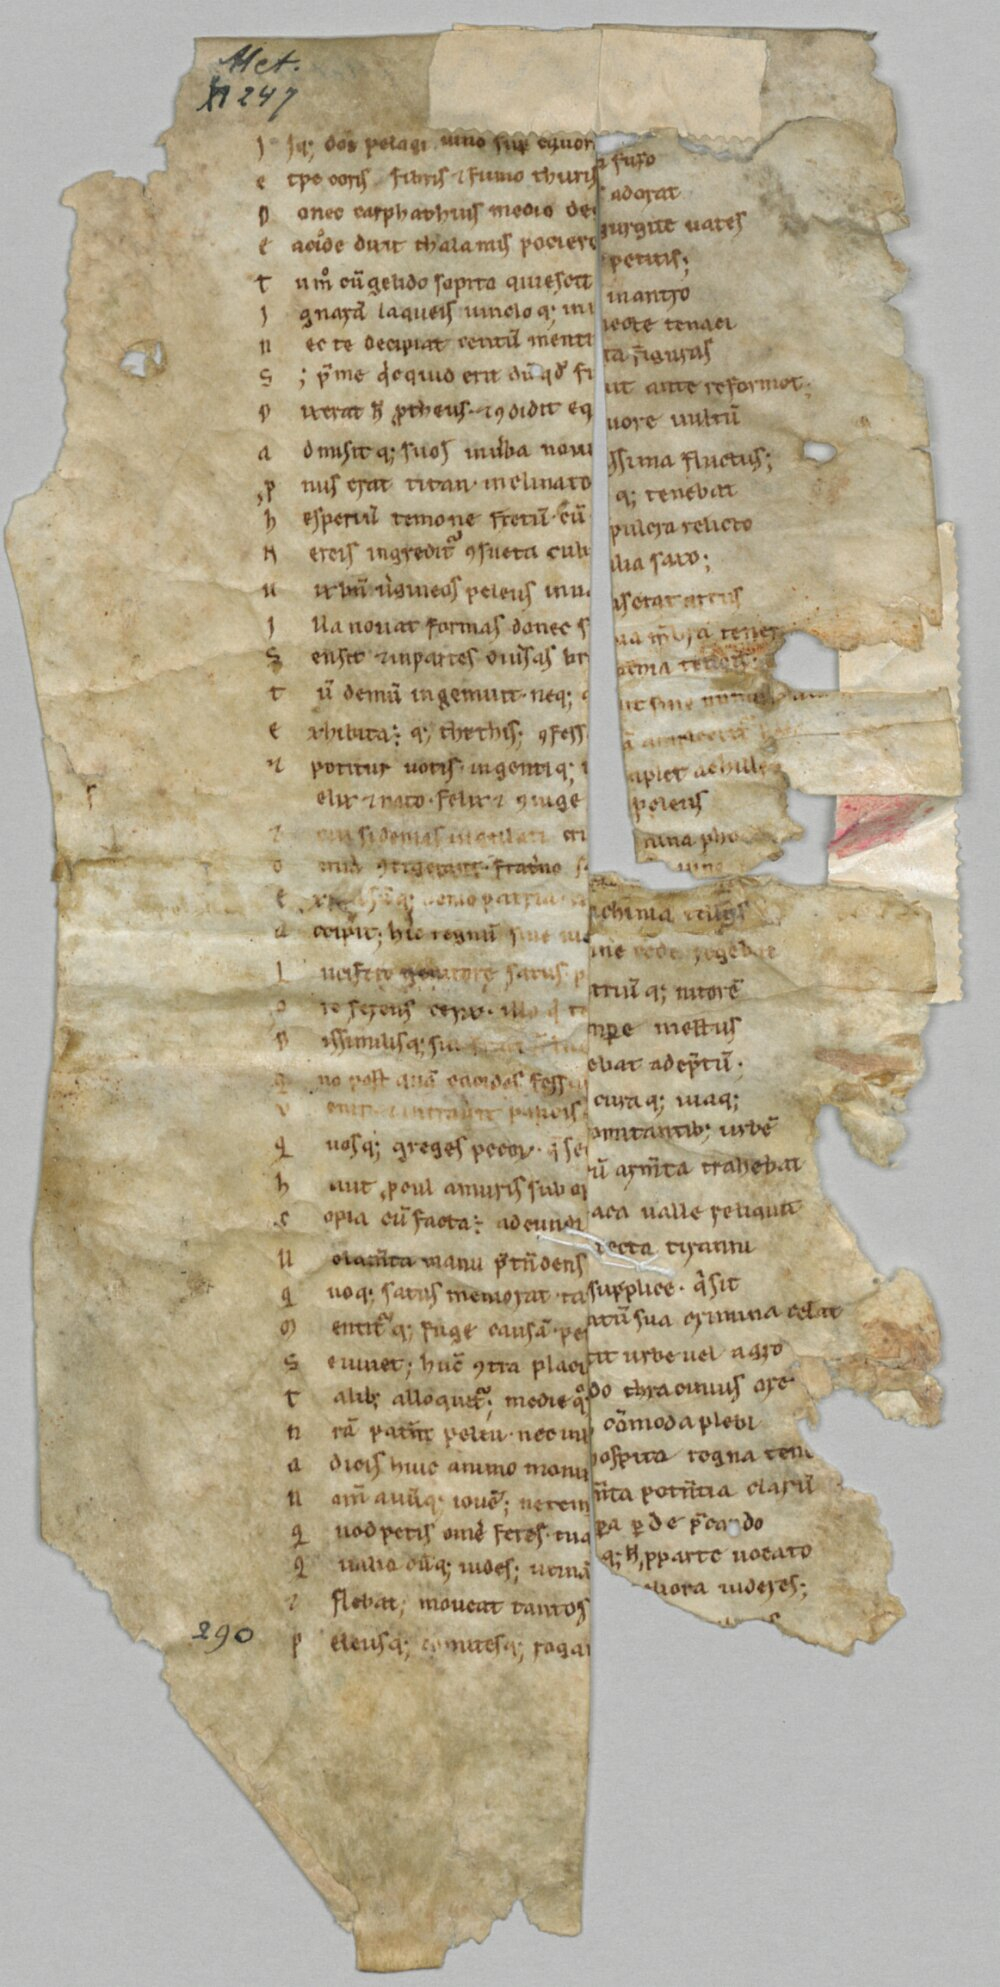 Met.
XI 247
I sq; deos pelagi uino sup equor a fuso
e tpecoris fibris ⁊ fumo thuris adorat
D onec carphathius medio de gurgite uates
E acide dixit thalamis pociere petitis;
T u m° cū gelido sopita quiescit in antro
I gnarā laqueis uincloq; in necte tenaci
N ec te decipiat centū menti ta figuras
S ; p̄me q̇cquid erit dū qd' fu it ante reformet.
D ixerat h̄ ꝓtheus. ⁊ 9didit eq uore uultū
a dmisitq; suos in ūba noui ssima fluctus;
ꝓ nus erat titan. inclinato q; tenebat
h esperiū temone fretū. cū pulcra relicto
N ereis ingredit᷑ 9sueta cubi lia saxo;
u ix bn̄ ūgineos peleus inua serat artus
I lla nouat formas donec s ua m̄bra teneri
S ensit ⁊ in partes diūsas br achia tendi.
t ū demū ingemuit. neq; a it sine numine
e xhibita÷ q; thethis; 9fess ā amplectit᷑
⁊ potitur uotis. ingentiq; i mplet achille
elix ⁊ nato. felix ⁊ 9iuge peleus
⁊ cui si demas iugulati cri mina pho
o mnia 9tigerant. fratno s
e x
a ccipit; hic regnū sine ui ne cede regebat
l ucifero genitore satus p atriūq; nitorē
o re ferens ceyx. illo q̇ te mpore mestus
D issimilisq; sui
q uo post quā eacides fess cura q; uiaq;
v enit ⁊ intrauit paucis comitantib; urbē
q uosq; greges pecoꝝ. q̄ se cū arm̄ta trahebat
h aut ꝓcul a muris sub op aca ualle reliquit
c opia cū facta÷ adeundi tecta tiranni
U elam̄ta manu p̄tn̄dens supplice. q̇ sit
q uoq; satus memorat. ta ntū sua crimina celat
M entit᷑q; fuge causā. pe tit urbe uel agro
S e iuuet; huc 9tra placi do thracinius ore
T alib; alloquit᷑; medie q° cōmoda plebi
n rā patn̄t peleu. nec in hospita regna tenem
a dicis huic animo mom n̄ta potn̄tia clarū
N om̄ auūq; iouē; ne tem pora ꝑde p̄cando
Q uod petis om̄e feres. tua q; h̄ ꝓ parte uocato
Q ualia cūq; uides; utinā meliora uideres;
⁊ flebat; moueat tantos
290
p eleusq; comitesq; rogan